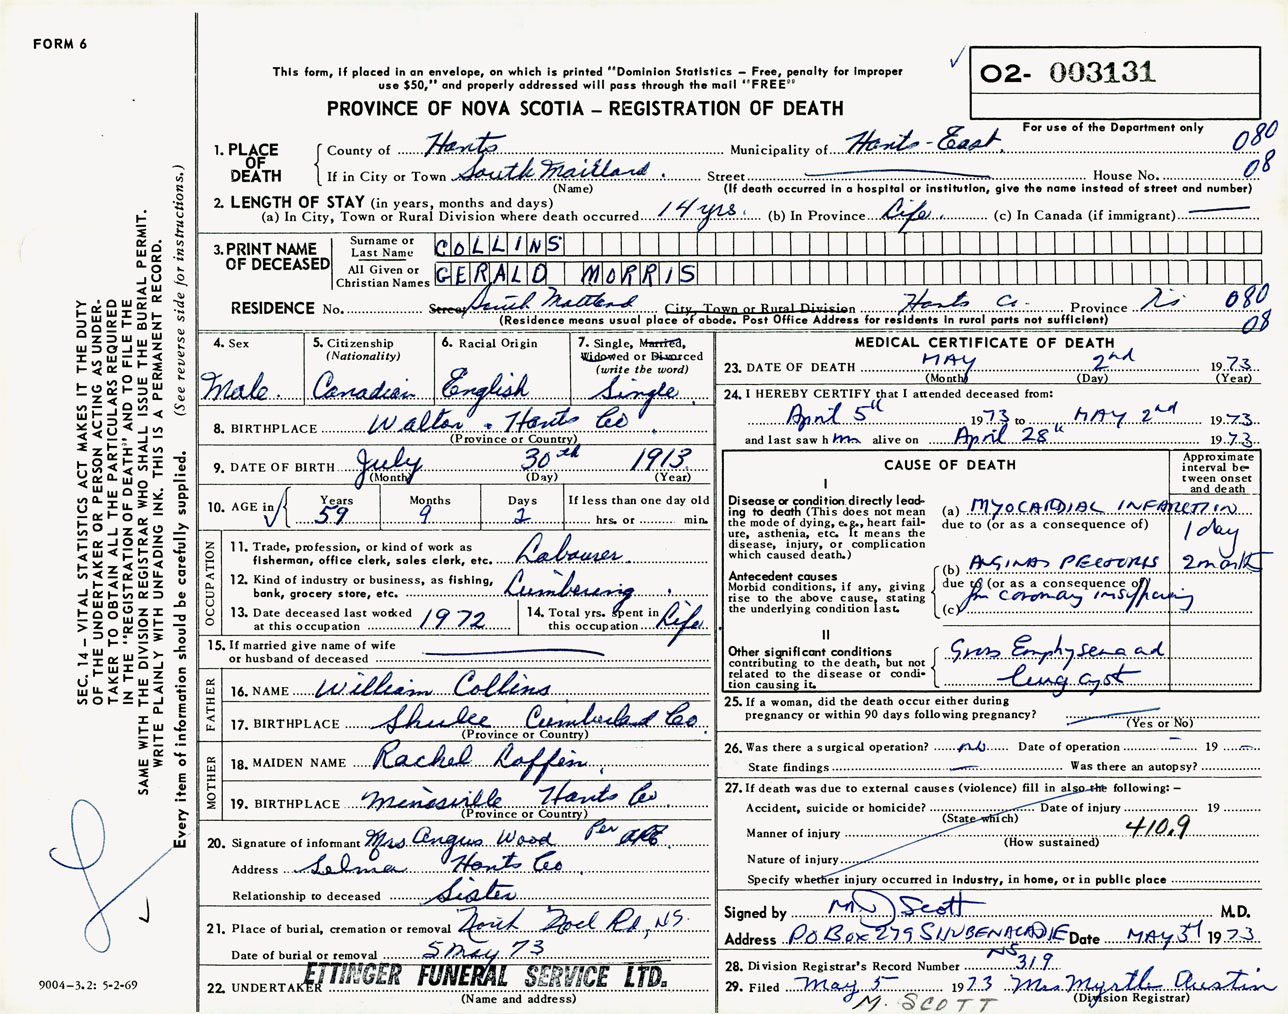 FORM 6
This form, if placed in an envelope, on which is printed "Dominion Statistics – Free, penalty for improper
use $50," and properly addressed will pass through the mail "FREE"
PROVINCE OF NOVA SCOTIA – REGISTRATION OF DEATH
O2- 003131
For use of the Department only
080
08
1. PLACE OF DEATH
County of Hants Municipality of Hants-East
If in City or Town South Maitland. Street House No.
(Name) (If death occurred in a hospital or institution, give the name instead of street and number)
2. LENGTH OF STAY (in years, months and days)
(a) In City, Town or Rural Division where death occurred 14 yrs. (b) In Province Life. (c) In Canada (if immigrant)
3. PRINT NAME OF DECEASED
Surname or Last Name COLLINS
All Given or Christian Names GERALD MORRIS
RESIDENCE No. Street South Maitland City, Town or Rural Division Hants Co. Province NS 080
(Residence means usual place of abode. Post Office Address for residents in rural parts not sufficient) 08
4. Sex
Male.
5. Citizenship
(Nationality)
Canadian
6. Racial Origin
English
7. Single, Married,
Widowed or Divorced
(write the word)
Single
8. BIRTHPLACE Walton. Hants Co.
(Province or Country)
9. DATE OF BIRTH July 30th 1913
(Month) (Day) (Year)
10. AGE in
Years Months Days If less than one day old
59 9 2 hrs. or min.
OCCUPATION
11. Trade, profession, or kind of work as
fisherman, office clerk, sales clerk, etc. Labourer
12. Kind of industry or business, as fishing,
bank, grocery store, etc. Lumbering.
13. Date deceased last worked
at this occupation 1972
14. Total yrs. spent in
this occupation Life
15. If married give name of wife
or husband of deceased
FATHER
16. NAME William Collins
17. BIRTHPLACE Shulee Cumberland Co.
(Province or Country)
MOTHER
18. MAIDEN NAME Rachel Coffin.
19. BIRTHPLACE Minasville Hants Co
(Province or Country)
20. Signature of informant Mrs Angus Wood Per
Address Selma Hants Co
Relationship to deceased Sister
21. Place of burial, cremation or removal North Noel Rd, NS.
Date of burial or removal 5 May 73
22. UNDERTAKER ETTINGER FUNERAL SERVICE LTD.
(Name and address)
MEDICAL CERTIFICATE OF DEATH
23. DATE OF DEATH MAY 2nd 1973
(Month) (Day) (Year)
24. I HEREBY CERTIFY that I attended deceased from:
April 5th 1973 to MAY 2nd 1973
and last saw him alive on April 28th 1973
CAUSE OF DEATH
Approximate interval between onset and death
I
Disease or condition directly lead-
ing to death (This does not mean
the mode of dying, e.g., heart fail-
ure, asthenia, etc. It means the
disease, injury, or complication
which caused death.)
(a) MYOCARDIAL INFARCTION
due to (or as a consequence of)
1 day
Antecedent causes
Morbid conditions, if any, giving
rise to the above cause, stating
the underlying condition last.
(b) ANGINA PECTORIS 2 months
due to (or as a consequence of)
(c) for coronary insufficiency
II
Other significant conditions
contributing to the death, but not
related to the disease or condi-
tion causing it.
Gross Emphysema and
lung cyst
25. If a woman, did the death occur either during
pregnancy or within 90 days following pregnancy?
(Yes or No)
26. Was there a surgical operation? no Date of operation 19
State findings Was there an autopsy?
27. If death was due to external causes (violence) fill in also the following: –
Accident, suicide or homicide? Date of injury 19
(State which)
Manner of injury 410.9
(How sustained)
Nature of injury
Specify whether injury occurred in industry, in home, or in public place
Signed by M Scott M.D.
Address PO Box 279 SHUBENACADIE NS Date MAY 3rd 1973
28. Division Registrar's Record Number 319
29. Filed May 5 1973 Mrs Myrtle Austin
(Division Registrar)
M. SCOTT
SEC. 14 – VITAL STATISTICS ACT MAKES IT THE DUTY
OF THE UNDERTAKER OR PERSON ACTING AS UNDER-
TAKER TO OBTAIN ALL THE PARTICULARS REQUIRED
IN THE "REGISTRATION OF DEATH" AND TO FILE THE
SAME WITH THE DIVISION REGISTRAR WHO SHALL ISSUE THE BURIAL PERMIT.
WRITE PLAINLY WITH UNFADING INK. THIS IS A PERMANENT RECORD.
Every item of information should be carefully supplied. (See reverse side for instructions.)
9004-3.2: 5-2-69